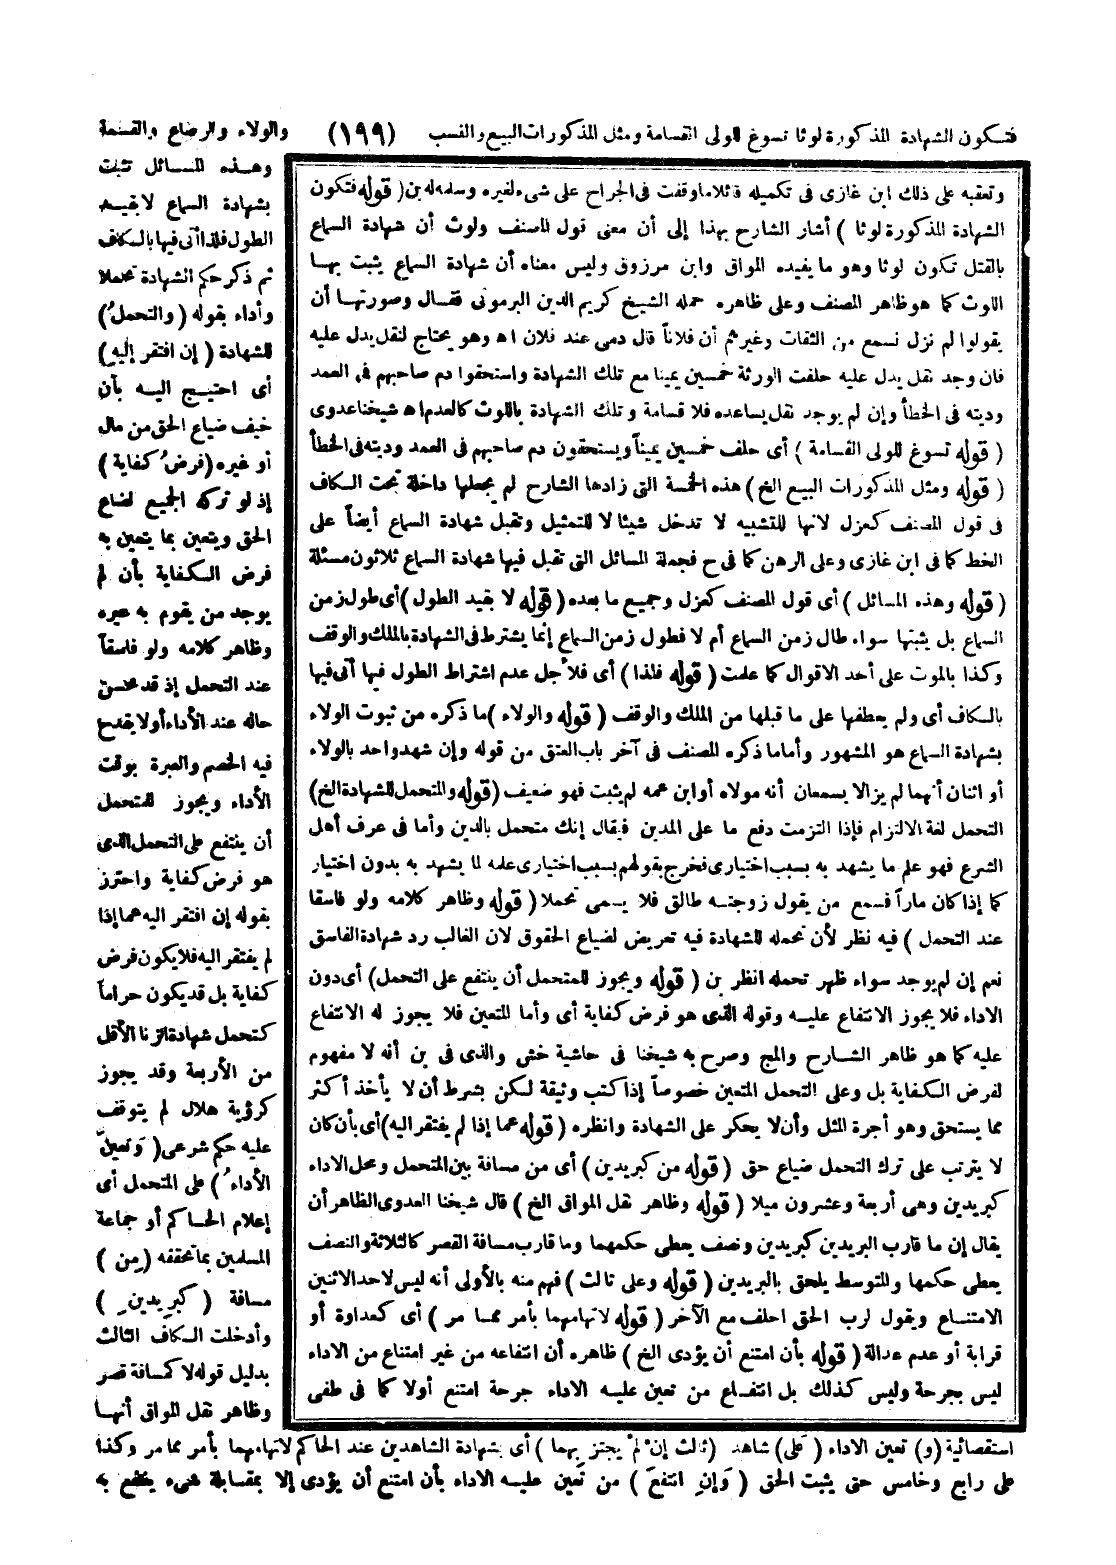 فتكون الشهادة المذكورة لوثا تسوغ للولى القسامة ومثل المذكورات البيع والنسب (١٩٩) والولاء والرضاع والقسمة
وهذه المسائل تثبت
بشهادة السماع لا بقيد
الطول فلذا أتى فيها بالكاف
ثم ذكر حكم الشهادة تحملا
وأداء بقوله (والتحملُ)
للشهادة (إن افتقر إليهِ)
أى احتيج اليه بأن
خيف ضياع الحق من مال
أو غيره (فرضُ كفاية)
إذ لو تركه الجميع لضاع
الحق ويتعين بما يتعين به
فرض الكفاية بأن لم
يوجد من يقوم به غيره
وظاهر كلامه ولو فاسقاً
عند التحمل إذ قد يحسن
حاله عند الأداء أولا يقدح
فيه الخصم والعبرة بوقت
الأداء ويجوز للمتحمل
أن ينتفع على التحمل الذى
هو فرض كفاية واحترز
بقوله إن افتقر اليه عما إذا
لم يفتقر اليه فلا يكون فرض
كفاية بل قد يكون حراماً
كتحمل شهادة الزنا لأقل
من الأربعة وقد يجوز
كرؤية هلال لم يتوقف
عليه حكم شرعى (وَتعينَ
الأداءُ) على المتحمل أى
إعلام الحاكم أو جماعة
المسلمين بما تحققه (مِن)
مسافة (كبرِيدينِ)
وأدخلت الكاف الثالث
بدليل قوله لا كمسافة قصر
وظاهر نقل المواق أنها
وتعقبه على ذلك ابن غازى فى تكميله قائلا ما وقفت فى الجراح على شىء لغيره وسلمه له بن (قوله فتكون
الشهادة المذكورة لوثا) أشار الشارح بهذا إلى أن معنى قول المصنف ولوث أن شهادة السماع
بالقتل تكون لوثا وهو ما يفيده المواق وابن مرزوق وليس معناه أن شهادة السماع يثبت بها
اللوث كما هو ظاهر المصنف وعلى ظاهره حمله الشيخ كريم الدين البرمونى فقال وصورتها أن
يقولوا لم نزل نسمع من الثقات وغيرهم أن فلاناً قال دمى عند فلان اه وهو يحتاج لنقل يدل عليه
فان وجد نقل يدل عليه حلفت الورثة خمسين يمينا مع تلك الشهادة واستحقوا دم صاحبهم فى العمد
وديته فى الخطأ وإن لم يوجد نقل يساعده فلا قسامة وتلك الشهادة باللوث كالعدم اه شيخنا عدوى
(قوله تسوغ للولى القسامة) أى حلف خمسين يميناً ويستحقون دم صاحبهم فى العمد وديته فى الخطأ
(قوله ومثل المذكورات البيع الخ) هذه الخمسة التى زادها الشارح لم يجعلها داخلة تحت الكاف
فى قول المصنف كعزل لانها للتشبيه لا تدخل شيئا لا للتمثيل وتقبل شهادة السماع أيضاً على
الخط كما فى ابن غازى وعلى الرهن كما فى ح فجملة المسائل التى تقبل فيها شهادة السماع ثلاثون مسئلة
(قوله وهذه المسائل) أى قول المصنف كعزل وجميع ما بعده (قوله لا بقيد الطول) أى طول زمن
السماع بل يثبتها سواء طال زمن السماع أم لا فطول زمن السماع إنما يشترط فى الشهادة بالملك والوقف
وكذا بالموت على أحد الاقوال كما علمت (قوله فلذا) أى فلأجل عدم اشتراط الطول فيها أتى فيها
بالكاف أى ولم يعطفها على ما قبلها من الملك والوقف (قوله والولاء) ما ذكره من ثبوت الولاء
بشهادة السماع هو المشهور وأما ما ذكره المصنف فى آخر باب العتق من قوله وإن شهد واحد بالولاء
أو اثنان أنهما لم يزالا يسمعان أنه مولاه أو ابن عمه لم يثبت فهو ضعيف (قوله والتحمل للشهادة الخ)
التحمل لغة الالتزام فإذا التزمت دفع ما على المدين فيقال إنك متحمل بالدين وأما فى عرف أهل
الشرع فهو علم ما يشهد به بسبب اختيارى فخرج بقولهم بسبب اختيارى علمه لما يشهد به بدون اختيار
كما إذا كان ماراً فسمع من يقول زوجته طالق فلا يسمى تحملا (قوله وظاهر كلامه ولو فاسقا
عند التحمل) فيه نظر لأن تحمله للشهادة فيه تعريض لضياع الحقوق لان الغالب رد شهادة الفاسق
نعم إن لم يوجد سواه ظهر تحمله انظر بن (قوله ويجوز للمتحمل أن ينتفع على التحمل) أى دون
الاداء فلا يجوز الانتفاع عليه وقوله الذى هو فرض كفاية أى وأما المتعين فلا يجوز له الانتفاع
عليه كما هو ظاهر الشارح والمج وصرح به شيخنا فى حاشية خش والذى فى بن أنه لا مفهوم
لفرض الكفاية بل وعلى التحمل المتعين خصوصاً إذا كتب وثيقة لكن بشرط أن لا يأخذ أكثر
مما يستحق وهو أجرة المثل وأن لا يحكر على الشهادة وانظره (قوله عما إذا لم يفتقر اليه) أى بأن كان
لا يترتب على ترك التحمل ضياع حق (قوله من كبريدين) أى من مسافة بين المتحمل ومحل الاداء
كبريدين وهى أربعة وعشرون ميلا (قوله وظاهر نقل المواق الخ) قال شيخنا العدوى الظاهر أن
يقال إن ما قارب البريدين كبريدين ونصف يعطى حكمهما وما قارب مسافة القصر كالثلاثة والنصف
يعطى حكمها والمتوسط يلحق بالبريدين (قوله وعلى ثالث) فهم منه بالأولى أنه ليس لاحد الاثنين
الامتناع ويقول لرب الحق احلف مع الآخر (قوله لاتهامهما بأمر مما مر) أى كعداوة أو
قرابة أو عدم عدالة (قوله بأن امتنع أن يؤدى الخ) ظاهره أن انتفاعه من غير امتناع من الاداء
ليس بجرحة وليس كذلك بل انتفاع من تعين عليه الاداء جرحة امتنع أولا كما فى طفى
استقصائية (و) تعين الاداء (عَلى) شاهد (ثالث إن لمْ يجتز بِهما) أى بشهادة الشاهدين عند الحاكم لاتهامهما بأمر مما مر وكذا
على رابع وخامس حتى يثبت الحق (وَإنِ انتفعَ) من تعين عليه الاداء بأن امتنع أن يؤدى إلا بمقابلة شىء ينتفع به